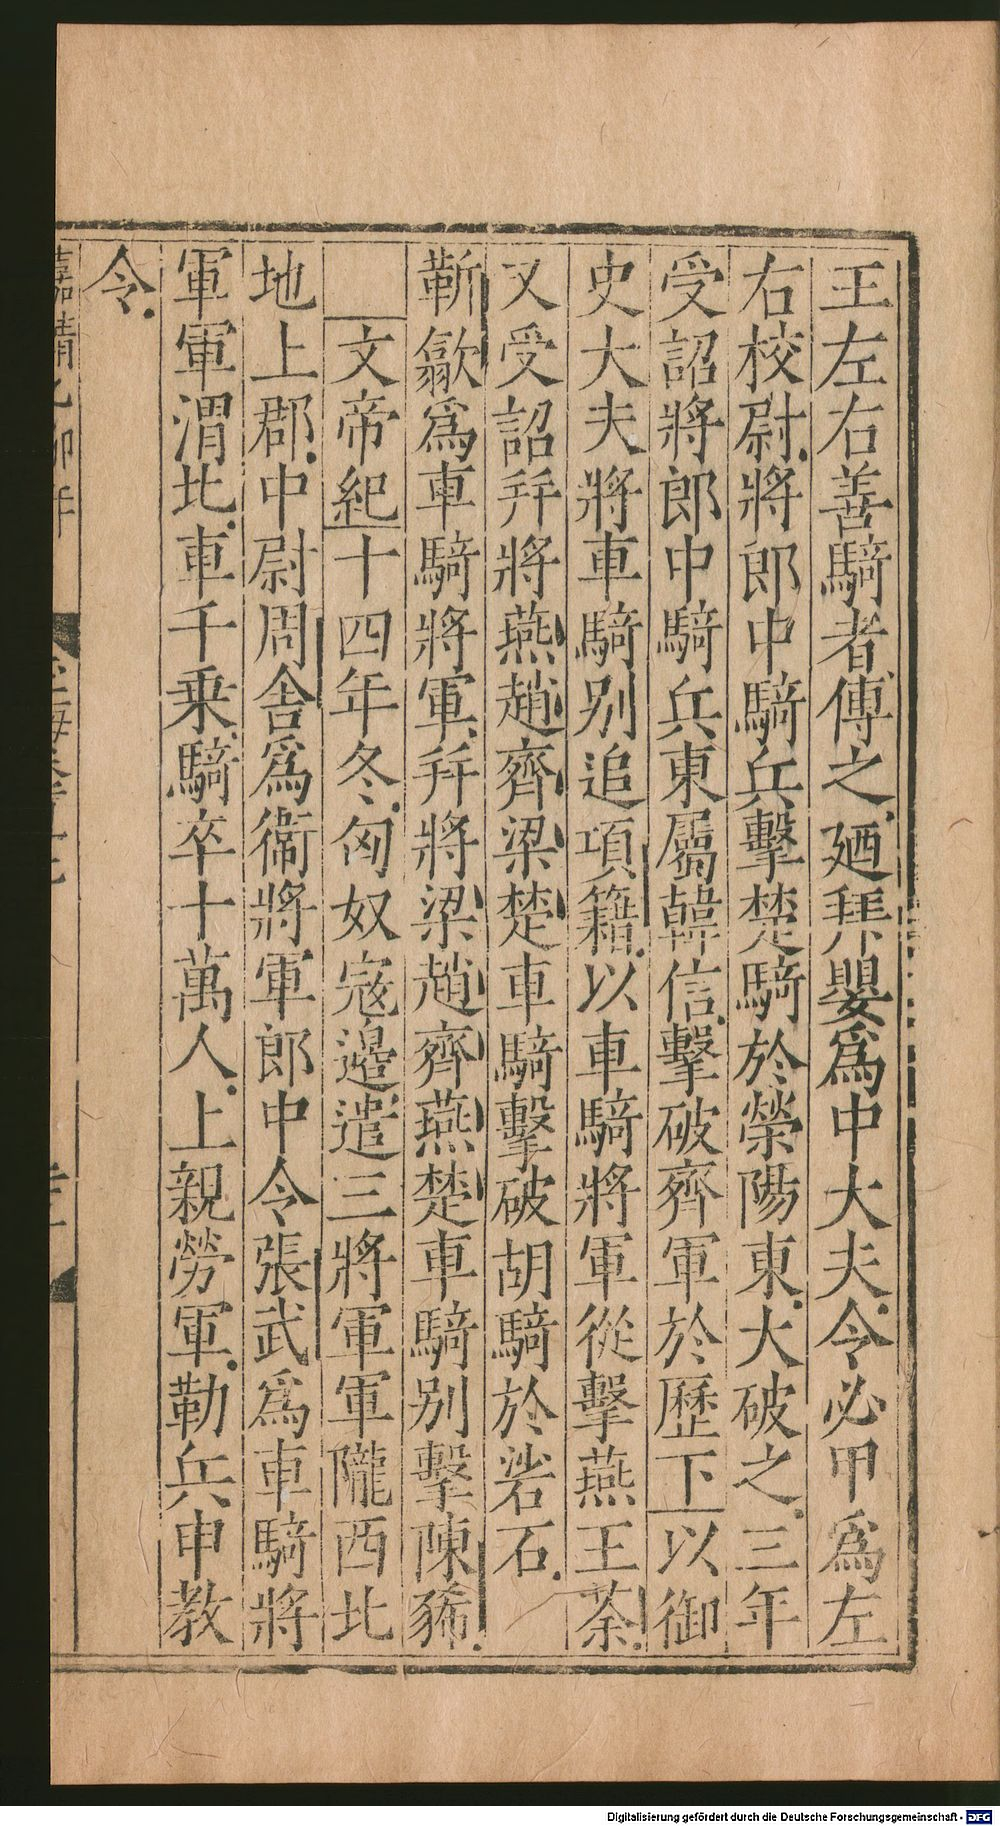 王左右善騎者傅之廼拜嬰爲中大夫令必甲爲左
右校尉將郎中騎兵擊楚騎於滎陽東大破之三年
受詔將郎中騎兵東屬韓信擊破齊軍於歷下以御
史大夫將車騎別追項籍以車騎將軍從擊燕王荼
又受詔幷將燕趙齊梁楚車騎擊破胡騎於硰石
靳歙爲車騎將軍幷將梁趙齊燕楚車騎別擊陳豨
文帝紀十四年冬匈奴寇邊遣三將軍軍隴西北
地上郡中尉周舎爲衞將軍郎中令張武爲車騎將
軍軍渭北車千乗騎卒十萬人上親勞軍勒兵申教
令
嘉靖乙卯年
Digitalisierung gefördert durch die Deutsche Forschungsgemeinschaft - DFG